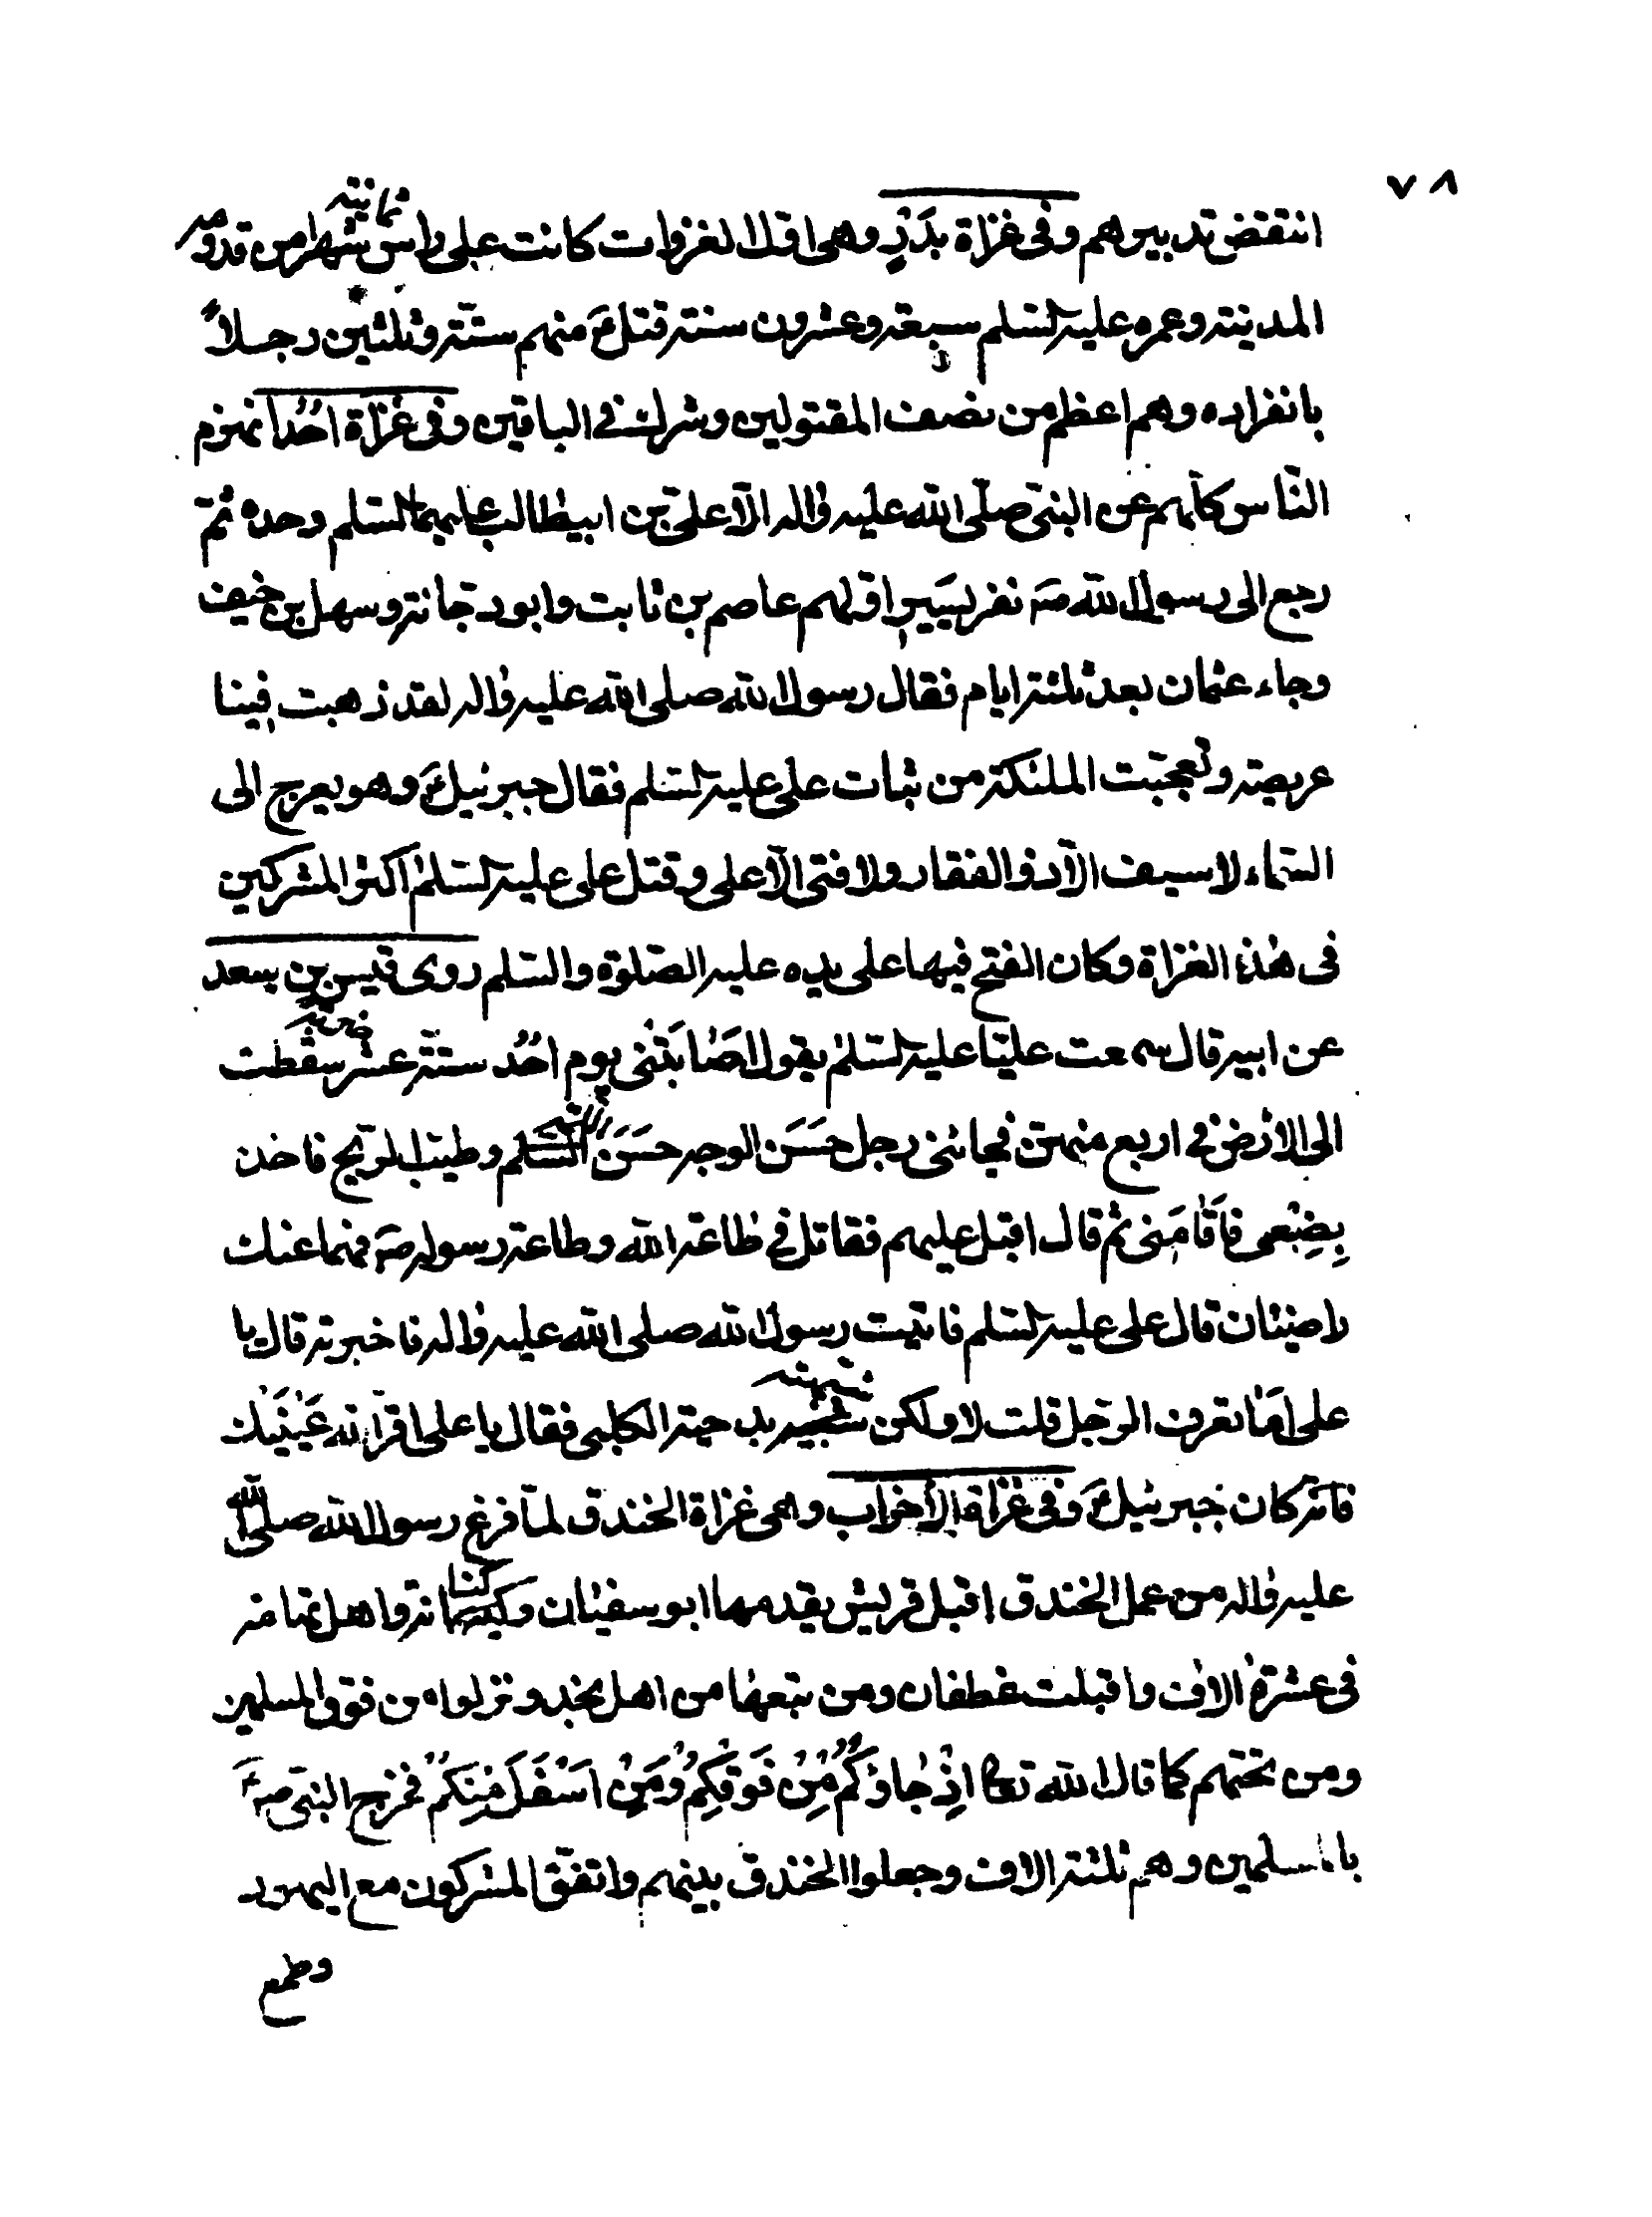 ٧٨
انتقض تدبيرهم وفى غزاة بدر وهى اول الغزوات كانت على راس ثمانية شهرا من قدومه
المدينة وعمره عليه السلم سبعة وعشرون سنة قتل ع منهم ستة وثلثين رجلاً
بانفراده وهم اعظم من نصف المقتولين وشرك في الباقين وفى غزاة احُد انهزم
النّاس كلّهم عن النبىّ صلّى الله عليه واله الّا على بن ابيطالب عليهما السلم وحده ثمّ
رجع الى رسول الله صه نفر يسير اوّلهم عاصم بن ثابت وابو دجانة وسهل بن حنيف
وجاء عثمان بعد ثلثة ايام فقال رسول الله صلى الله عليه واله لقد ذهبت فينا
عريضة وتعجبت الملئكة من ثبات على عليه السلم فقال جبرئيل ع وهو يعرج الى
السّماء لا سيف الّا ذو الفقار ولا فتى الّا على وقتل على عليه السلم اكثر المشركين
فى هذه الغزاة وكان الفتح فيها على يده عليه الصّلوة والسّلم روى قيس بن سعد
عن ابيه قال سمعت عليّا عليه السلم يقول اصابتنى يوم احُد ستّة عشر ضربة سقطت
الى الارض في اربع منهنّ فجائنى رجل حَسَن الوجه حَسَن اللمة وطيّب الرّيح فاخذ
بِضِبْعى فاَقامَنى ثم قال اقبل عليهم فقاتل في طاعة الله وطاعة رسوله صه فهما عنك
راضيان قال على عليه السلم فاتيت رسول الله صلى الله عليه واله فاخبرته قال يا
على اَما تعرف الرّجل قلت لا ولكن شبهته بدحية الكلبى فقال يا على اقرّ الله عَيْنَيْك
فانّه كان جبرئيل ع وفى غزاة الأحزاب وهى غزاة الخندق لمّا فرغ رسول الله صلى الله
عليه واله من عمل الخندق اقبل قريش يقدمها ابو سفيان وكنانة واهل تهامة
فى عشرة الاف واقبلت غطفان ومن تبعها من اهل نجد ونزلوا من فوق المسلمين
ومن تحتهم كما قال الله تعا اِذْ جاؤكُمْ مِنْ فَوْقِكُمْ وَمِنْ اَسْفَلَ مِنكُمْ فخرج النبىّ صه
بالمسلمين وهم ثلثة الاف وجعلوا الخندق بينهم واتفق المشركون مع اليهود
وطمع